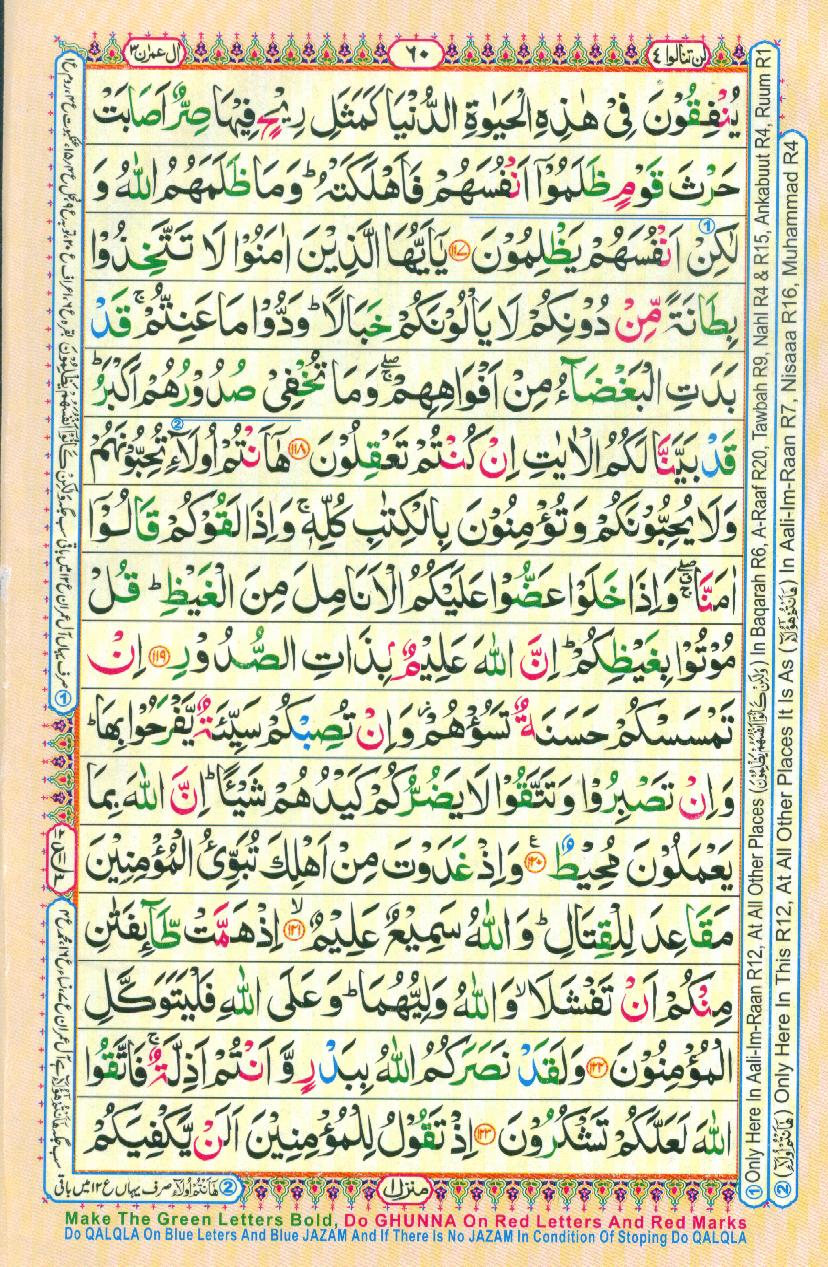 لن تنالوا ٤
٦٠
ال عمرٰن ٣
يُنْفِقُوْنَ فِىْ هٰذِهِ الْحَيٰوةِ الدُّنْيَا كَمَثَلِ رِيْحٍ فِيْهَا صِرٌّ اَصَابَتْ
حَرْثَ قَوْمٍ ظَلَمُوْۤا اَنْفُسَهُمْ فَاَهْلَكَتْهُ ؕ وَمَا ظَلَمَهُمُ اللّٰهُ وَ
لٰكِنْ اَنْفُسَهُمْ يَظْلِمُوْنَ ﴿۱۱۷﴾ يٰۤاَيُّهَا الَّذِيْنَ اٰمَنُوْا لَا تَتَّخِذُوْا
بِطَانَةً مِّنْ دُوْنِكُمْ لَا يَاْلُوْنَكُمْ خَبَالًا ؕ وَدُّوْا مَا عَنِتُّمْ ۚ قَدْ
بَدَتِ الْبَغْضَآءُ مِنْ اَفْوَاهِهِمْ ۖۚ وَمَا تُخْفِىْ صُدُوْرُهُمْ اَكْبَرُ ؕ
قَدْ بَيَّنَّا لَكُمُ الْاٰيٰتِ اِنْ كُنْتُمْ تَعْقِلُوْنَ ﴿۱۱۸﴾ هٰۤاَنْتُمْ اُولَآءِ تُحِبُّوْنَهُمْ
وَلَا يُحِبُّوْنَكُمْ وَتُؤْمِنُوْنَ بِالْكِتٰبِ كُلِّهٖ ۚ وَاِذَا لَقُوْكُمْ قَالُوْۤا
اٰمَنَّا ۖۚ وَاِذَا خَلَوْا عَضُّوْا عَلَيْكُمُ الْاَنَامِلَ مِنَ الْغَيْظِ ؕ قُلْ
مُوْتُوْا بِغَيْظِكُمْ ؕ اِنَّ اللّٰهَ عَلِيْمٌۢ بِذَاتِ الصُّدُوْرِ ﴿۱۱۹﴾ اِنْ
تَمْسَسْكُمْ حَسَنَةٌ تَسُؤْهُمْ ۫ وَاِنْ تُصِبْكُمْ سَيِّئَةٌ يَّفْرَحُوْا بِهَا ؕ
وَاِنْ تَصْبِرُوْا وَتَتَّقُوْا لَا يَضُرُّكُمْ كَيْدُهُمْ شَيْـًٔا ؕ اِنَّ اللّٰهَ بِمَا
يَعْمَلُوْنَ مُحِيْطٌ ﴿۱۲۰﴾ وَاِذْ غَدَوْتَ مِنْ اَهْلِكَ تُبَوِّئُ الْمُؤْمِنِيْنَ
مَقَاعِدَ لِلْقِتَالِ ؕ وَاللّٰهُ سَمِيْعٌ عَلِيْمٌ ﴿۱۲۱﴾ اِذْ هَمَّتْ طَّآئِفَتٰنِ
مِنْكُمْ اَنْ تَفْشَلَا ۙ وَاللّٰهُ وَلِيُّهُمَا ؕ وَعَلَى اللّٰهِ فَلْيَتَوَكَّلِ
الْمُؤْمِنُوْنَ ﴿۱۲۲﴾ وَلَقَدْ نَصَرَكُمُ اللّٰهُ بِبَدْرٍ وَّاَنْتُمْ اَذِلَّةٌ ۚ فَاتَّقُوا
اللّٰهَ لَعَلَّكُمْ تَشْكُرُوْنَ ﴿۱۲۳﴾ اِذْ تَقُوْلُ لِلْمُؤْمِنِيْنَ اَلَنْ يَّكْفِيَكُمْ
منزل ۱
② هٰۤاَنْتُمْ اُولَآءِ صرف یہاں ع ۱۲ میں باقی
① Only Here In Aali-Im-Raan R12, At All Other Places (وَلٰكِنْ كَانُوْۤا اَنْفُسَهُمْ يَظْلِمُوْنَ) In Baqarah R6, A-Raaf R20, Tawbah R9, Nahl R4 & R15, Ankabuut R4, Ruum R1
② (هٰۤاَنْتُمْ اُولَآءِ) Only Here In This R12, At All Other Places It Is As (هٰۤاَنْتُمْ هٰۤؤُلَآءِ) In Aali-Im-Raan R7, Nisaaa R16, Muhammad R4
Make The Green Letters Bold, Do GHUNNA On Red Letters And Red Marks
Do QALQLA On Blue Leters And Blue JAZAM And If There Is No JAZAM In Condition Of Stoping Do QALQLA